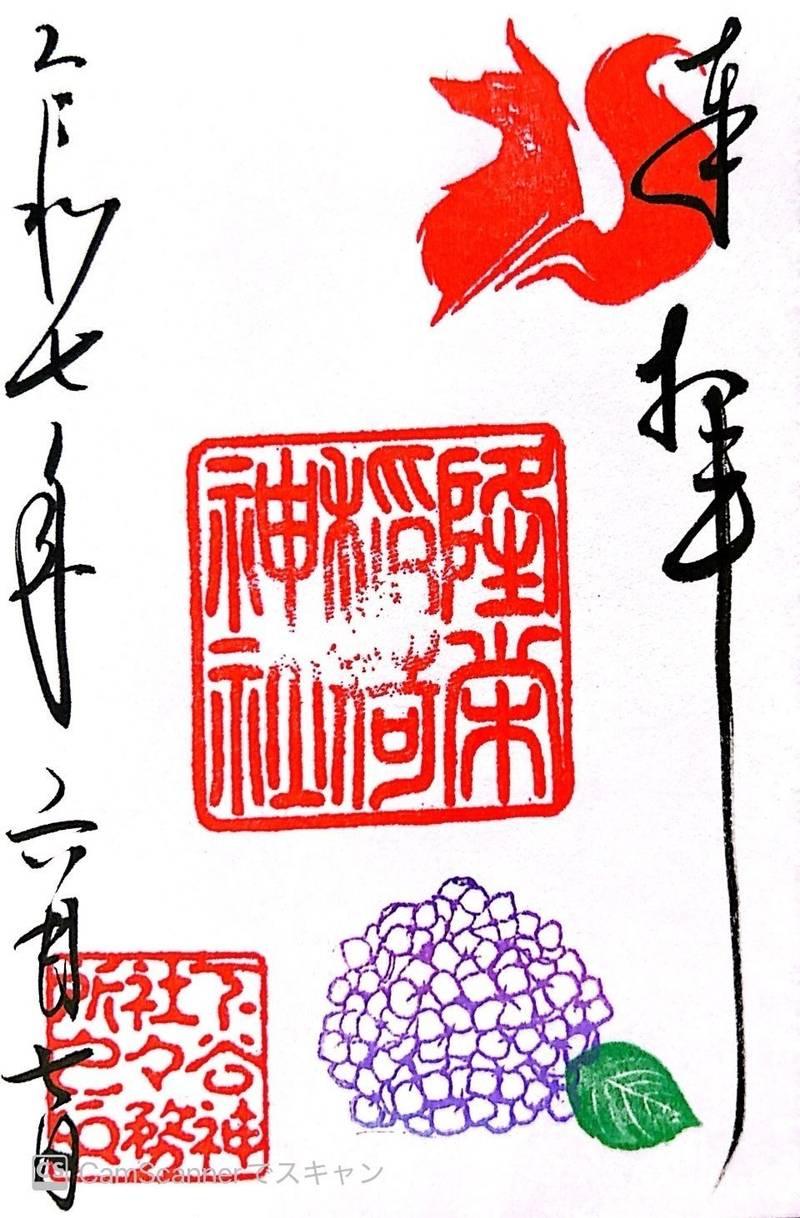 奉拝
隆栄
稲荷
神社
令和七年六月七日
下谷神
社々務
所之印
CS CamScannerでスキャン